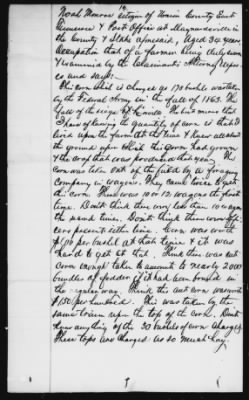 Noah Monroe a citizen of Union County East
Tennessee & Post Office at Maynardville in
the County & State aforesaid, Aged 39 years
Occupation that of a farmer being duly sworn
& examined by the Claimants Attorney depos
es and says:
This corn that is charged as 170 bushels was taken
by the Federal Army in the fall of 1863. The
fall of the siege of
I have of knowing the quantity of corn is that I
lived upon the farm at the time & knew about
the ground upon which this corn had grown
& the crop that was produced that year. This
corn was taken out of the field by a foraging
company in wagons. They came twice to get
this corn. There were 10 or 12 wagons the first
time. Dont think there were less than 10 wagons
the second time. Dont think there were offi
cers present either time. Corn was worth
$1.00 per bushel at that time & it was
hard to get at that. Think there was cut
corn enough taken to amount to nearly 2000
bundles of fodder if it had been pulled in
the regular way. Think this cut corn was worth
$1.50 per hundred. This was taken by the
same train upon the top of the corn. Dont
know anything of the 30 bushels of corn charged.
These tops are charged as so much hay.